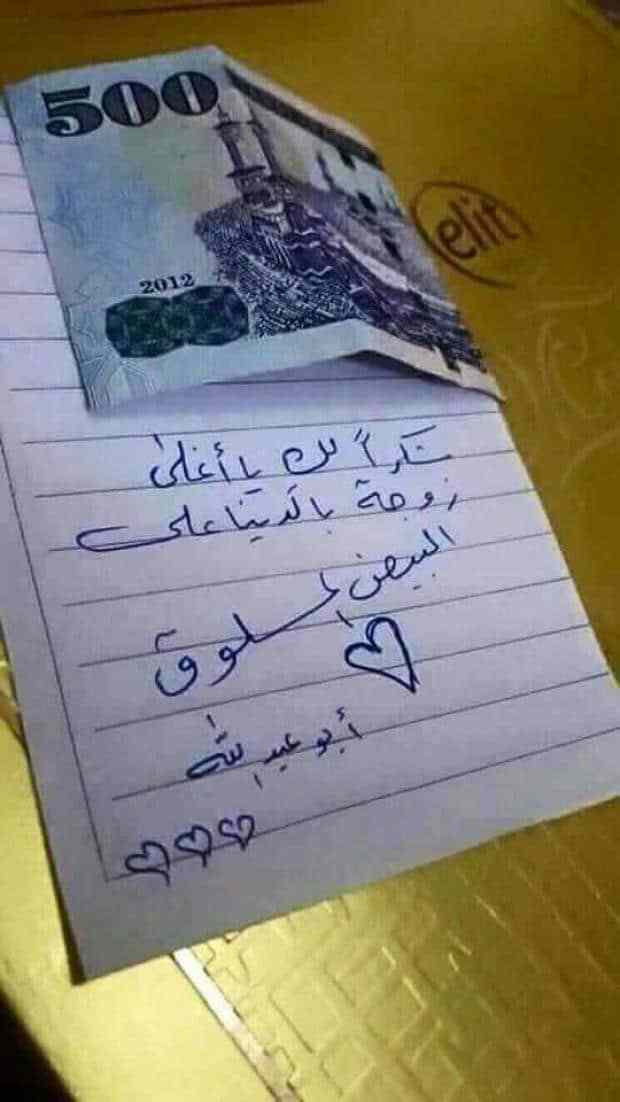 500
2012
elit
شكراً لك يا أغلى
زوجة بالدينا على
البيض المسلوق
أبو عبد الله